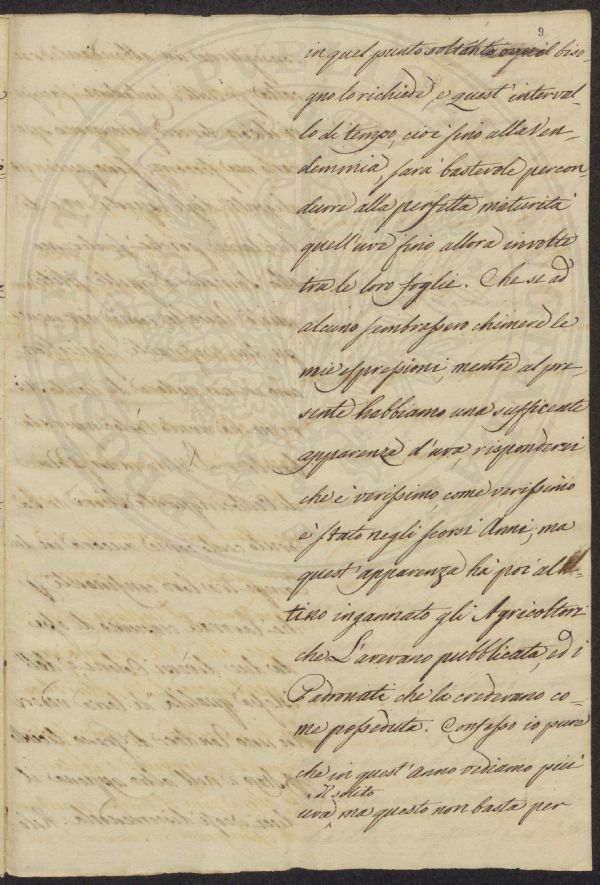 9
in quel punto soltanto ove il biso-
gno lo richiede, e quest'interval-
lo di tempo, cioè fino alla Ven-
demmia, sarà bastevole percon-
durre alla perfetta maturità
quell'uve fino allora involte
tra le loro foglie. Che se ad
alcuno sembrassero chimere le
mie espressioni, mentre al pre-
sente habbiamo una sufficente
apparenza d'uva, risponderei
che è verissimo, come verissimo
è stato negli scorsi Anni, ma
quest'apparenza hà poi al
timo ingannato gli Agricoltori
che L'avevano pubblicata, ed i
Padronati che la credevano co-
me posseduta. Confesso io pure
che in quest'anno vediamo più
il solito
uva, ma questo non basta per